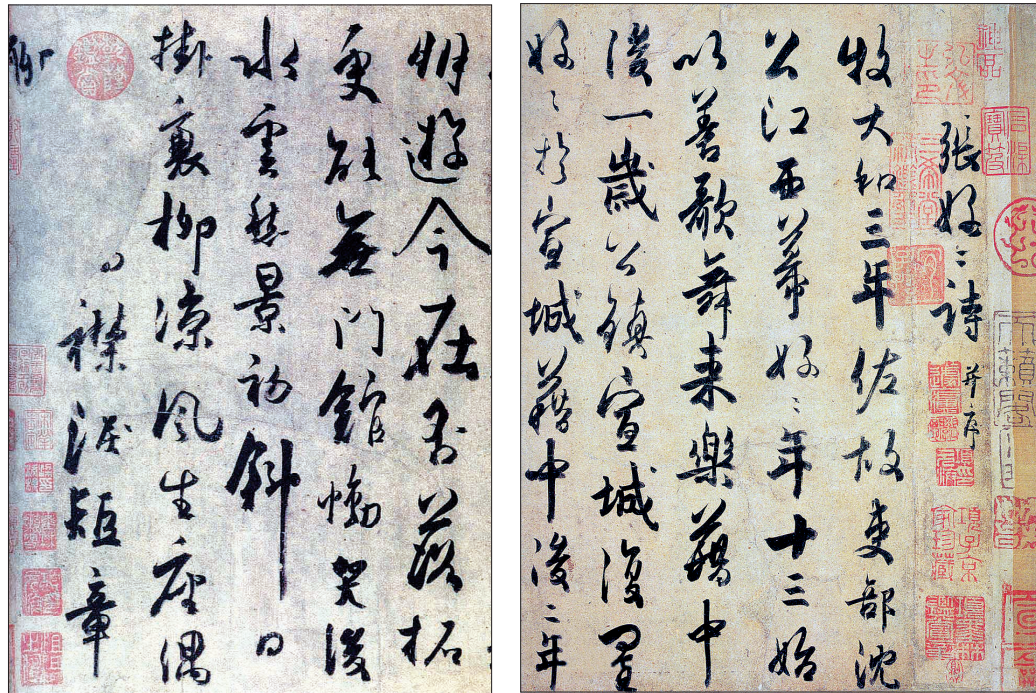 張好〻詩 并序
牧大和三年佐故吏部沈
公江西幕好〻年十三始
以善歌舞來樂籍中
後一歲公鎮宣城復置
好〻於宣城籍中後二年
朋遊今在否落拓
更能無門館慟哭後
水雲愁景初斜日
掛衰柳涼風生座隅
襟淚短章
石渠寶笈
項子京家珍藏